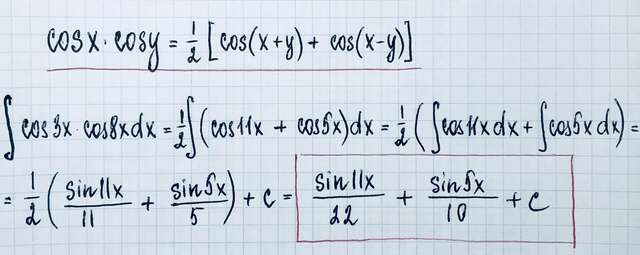 cosx · cosy = 1/2 [cos(x+y) + cos(x-y)]
∫ cos3x · cos8x dx = 1/2 ∫ (cos11x + cos5x) dx = 1/2 (∫ cos11x dx + ∫ cos5x dx) =
= 1/2 (sin11x/11 + sin5x/5) + c = sin11x/22 + sin5x/10 + c